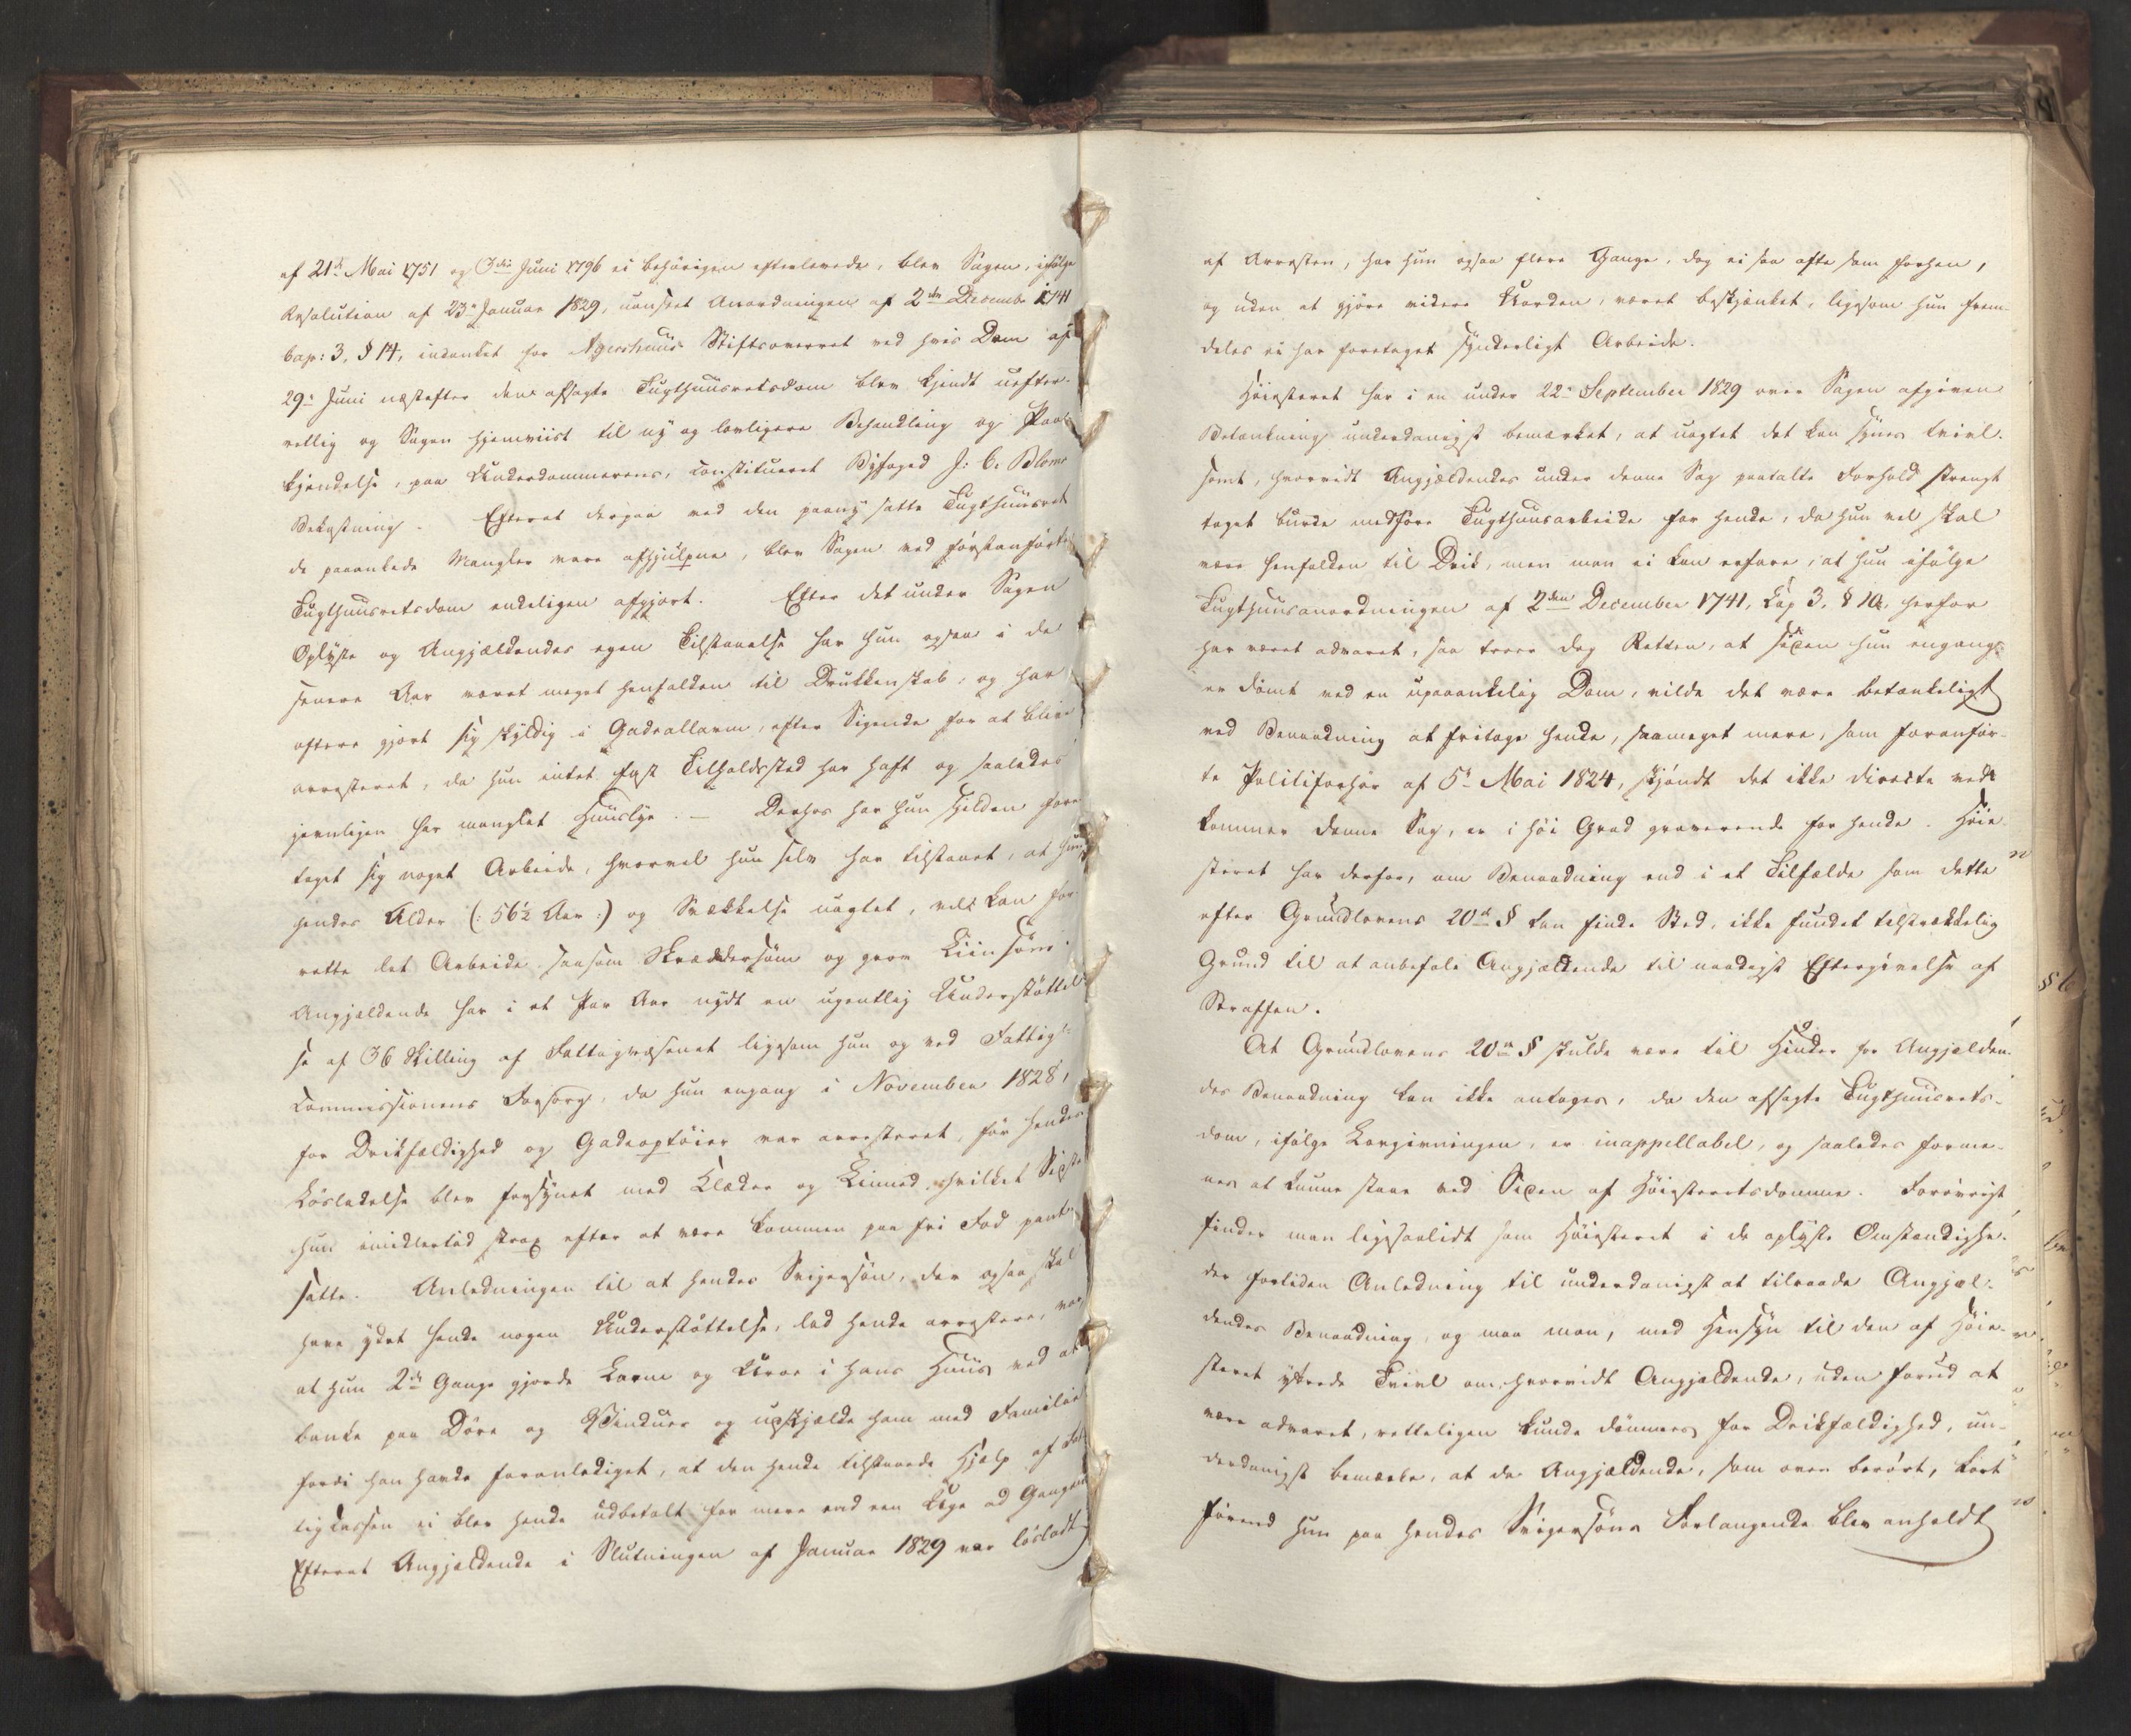 af 21de Mai 1751 og 3die Juni 1796 ei behörigen efterlevede, blev Sagen, ifölge
Resolution af 23de Januar 1829, uanseet Anordningen af 2den Decembr 1741
Cap: 3, § 14, indanket for Agershuus Stiftsoverret ved hvis Dom af
29de Juni næstefter den afsagte Tugthuusretsdom blev kjendt uefter-
rettelig og Sagen hjemviist til ny og lovligere Behandling og Paa-
kjendelse, paa Underdommerens, constitueret Byfoged J: C. Blom
Bekostning. Efterat derpaa ved den paany satte Tugthuusret
de paaankede Mangler vare afhjulpne, blev Sagen ved förstanförte
Tugthuusretsdom endeligen afgjort. Efter det under Sagen
Oplyste og Angjældendes egen Tilstaaelse har hun ogsaa i de
senere Aar været meget henfalden til Drukkenskab, og har
oftere gjort sig skyldig i Gadeallarm, efter Sigende for at blive
arresteret, da hun intet fast Tilholdssted har haft og saaledes
jevnligen har manglet Huuslye. — Derhos har hun sjelden fore-
taget sig noget Arbeide, hvorvel hun selv har tilstaaet, at hun
hendes Alder (: 56½ Aar :) og Svækkelse uagtet, vel kan for-
rette let Arbeide saasom Skræddersöm og grov Liinsöm.
Angjældende har i et Par Aar nydt en ugentlig Understöttel-
se af 36 Skilling af Fattigvæsenet ligesom hun og ved Fattig-
commissionens Forsorg, da hun engang i November 1828,
for Drikfældighed og Gadeoptöier var arresteret, för hendes
Lösladelse blev forsynet med Klæder og Linned, hvilket Sidste
hun imidlertid strax efter at være kommen paa fri Fod pant-
satte. Anledningen til at hendes Svigersön, der ogsaa skal
have ydet hende nogen Understöttelse, lod hende arrestere, var
at hun 2de Gange gjorde Larm og Uroe i hans Huus ved at
banke paa Döre og Vinduer og udskjælde ham med Familie
fordi han havde foranlediget, at den hende tilstaaede Hjælp af Fat-
tigkassen ei blev hende udbetalt for mere end een Uge ad Gangen
Efterat Angjældende i Slutningen af Januar 1829 var lösladt
af Arresten, har hun ogsaa flere Gange, dog ei saa ofte som forhen,
og uden at gjöre videre Uorden, været beskjænket, ligesom hun frem-
deles ei har foretaget synderligt Arbeide.
Höiesteret har i en under 22de September 1829 over Sagen afgiven
Betænkning underdanigst bemærket, at uagtet det kan synes tvivl-
somt, hvorvidt Angjældendes under denne Sag paatalte Forhold strengt
taget burde medföre Tugthuusarbeide for hende, da hun vel skal
være henfalden til Drik, men man ei kan erfare, at hun ifölge
Tugthuusanordningen af 2den December 1741, Cap 3, § 10, herfor
har været advaret, saa troer dog Retten, at siden hun engang
er dömt ved en upaaankelig Dom, vilde det være betænkeligt
ved Benaadning at fritage hende, saameget mere, som foranför-
te Politiforhör af 5te Mai 1824, skjöndt det ikke directe ved-
kommer denne Sag, er i höi Grad graverende for hende. Höie-
steret har derfor, om Benaadning end i et Tilfælde som dette
efter Grundlovens 20de § kan finde Sted, ikke fundet tilstrækkelig
Grund til at anbefale Angjældende til naadigst Eftergivelse af
Straffen.
At Grundlovens 20de § skulde være til Hinder for Angjælden-
des Benaadning kan ikke antages, da den afsagte Tugthuusrets-
dom, ifölge Lovgivningen, er inappellabel, og saaledes forme-
nes at kunne staae ved Siden af Höiesteretsdomme. Forövrigt
finder man ligesaalidt som Höiesteret i de oplyste Omstændighe-
der forliden Anledning til underdanigst at tilraade Angjæl-
dendes Benaadning, og maa man, med Hensyn til den af Höie-
steret yttrede Tvivl om, hvorvidt Angjældende, uden forud at
være advaret, retteligen kunde dömmes for Drikfældighed, un-
derdanigst bemærke, at da Angjældende, som oven berört, kort
förend hun paa hendes Svigersöns Forlangende blev anholdt